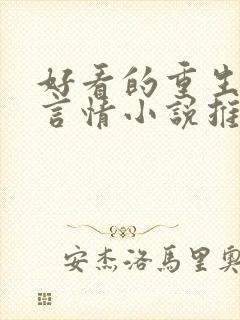 好看的重生
言情小說推
安杰洛馬里奧